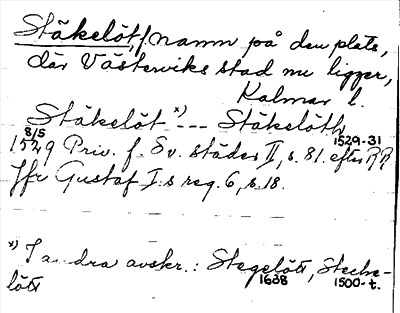 Stäkelöt, f. namn på den plats,
där Västerviks stad nu ligger,
Kalmar l.
Stäkelöt x) --- Stäkelöth
8/5 1529-31
1529 Priv. f. Sv. städer II, s. 81. efter RR
Jfr Gustaf I:s reg. 6, s. 18.
x) I andra avskr.: Stegelött, Stecke-
lött 1638 1500-t.